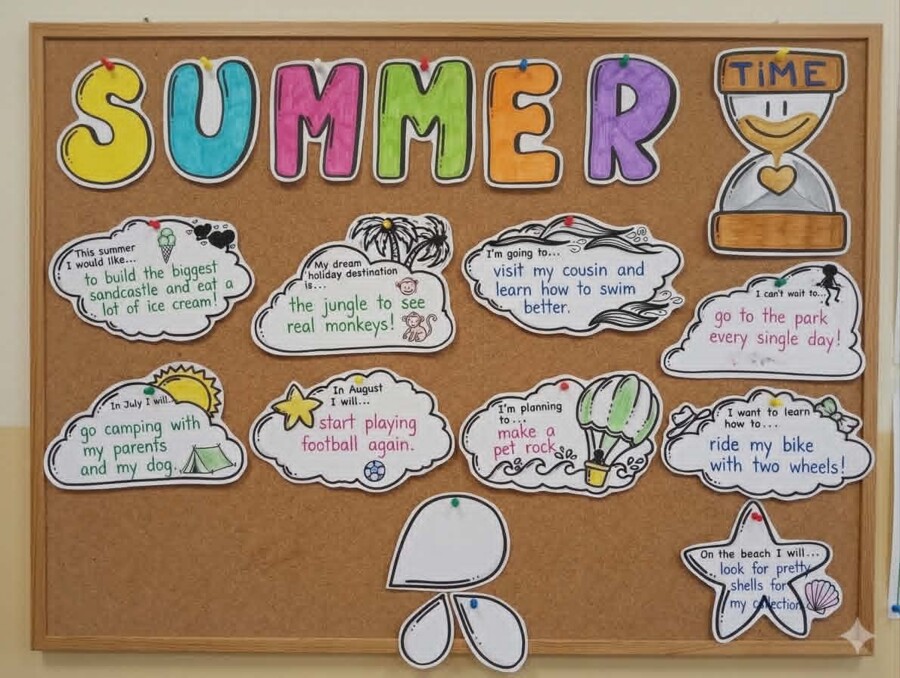 SUMMER
TiME
This summer
I would like...
to build the biggest
sandcastle and eat a
lot of ice cream!
My dream
holiday destination
is...
the jungle to see
real monkeys!
I'm going to...
visit my cousin and
learn how to swim
better.
I can't wait to...
go to the park
every single day!
In July I will...
go camping with
my parents
and my dog.
In August
I will...
start playing
football again.
I'm planning
to...
make a
pet rock.
I want to learn
how to...
ride my bike
with two wheels!
On the beach I will...
look for pretty
shells for
my collection